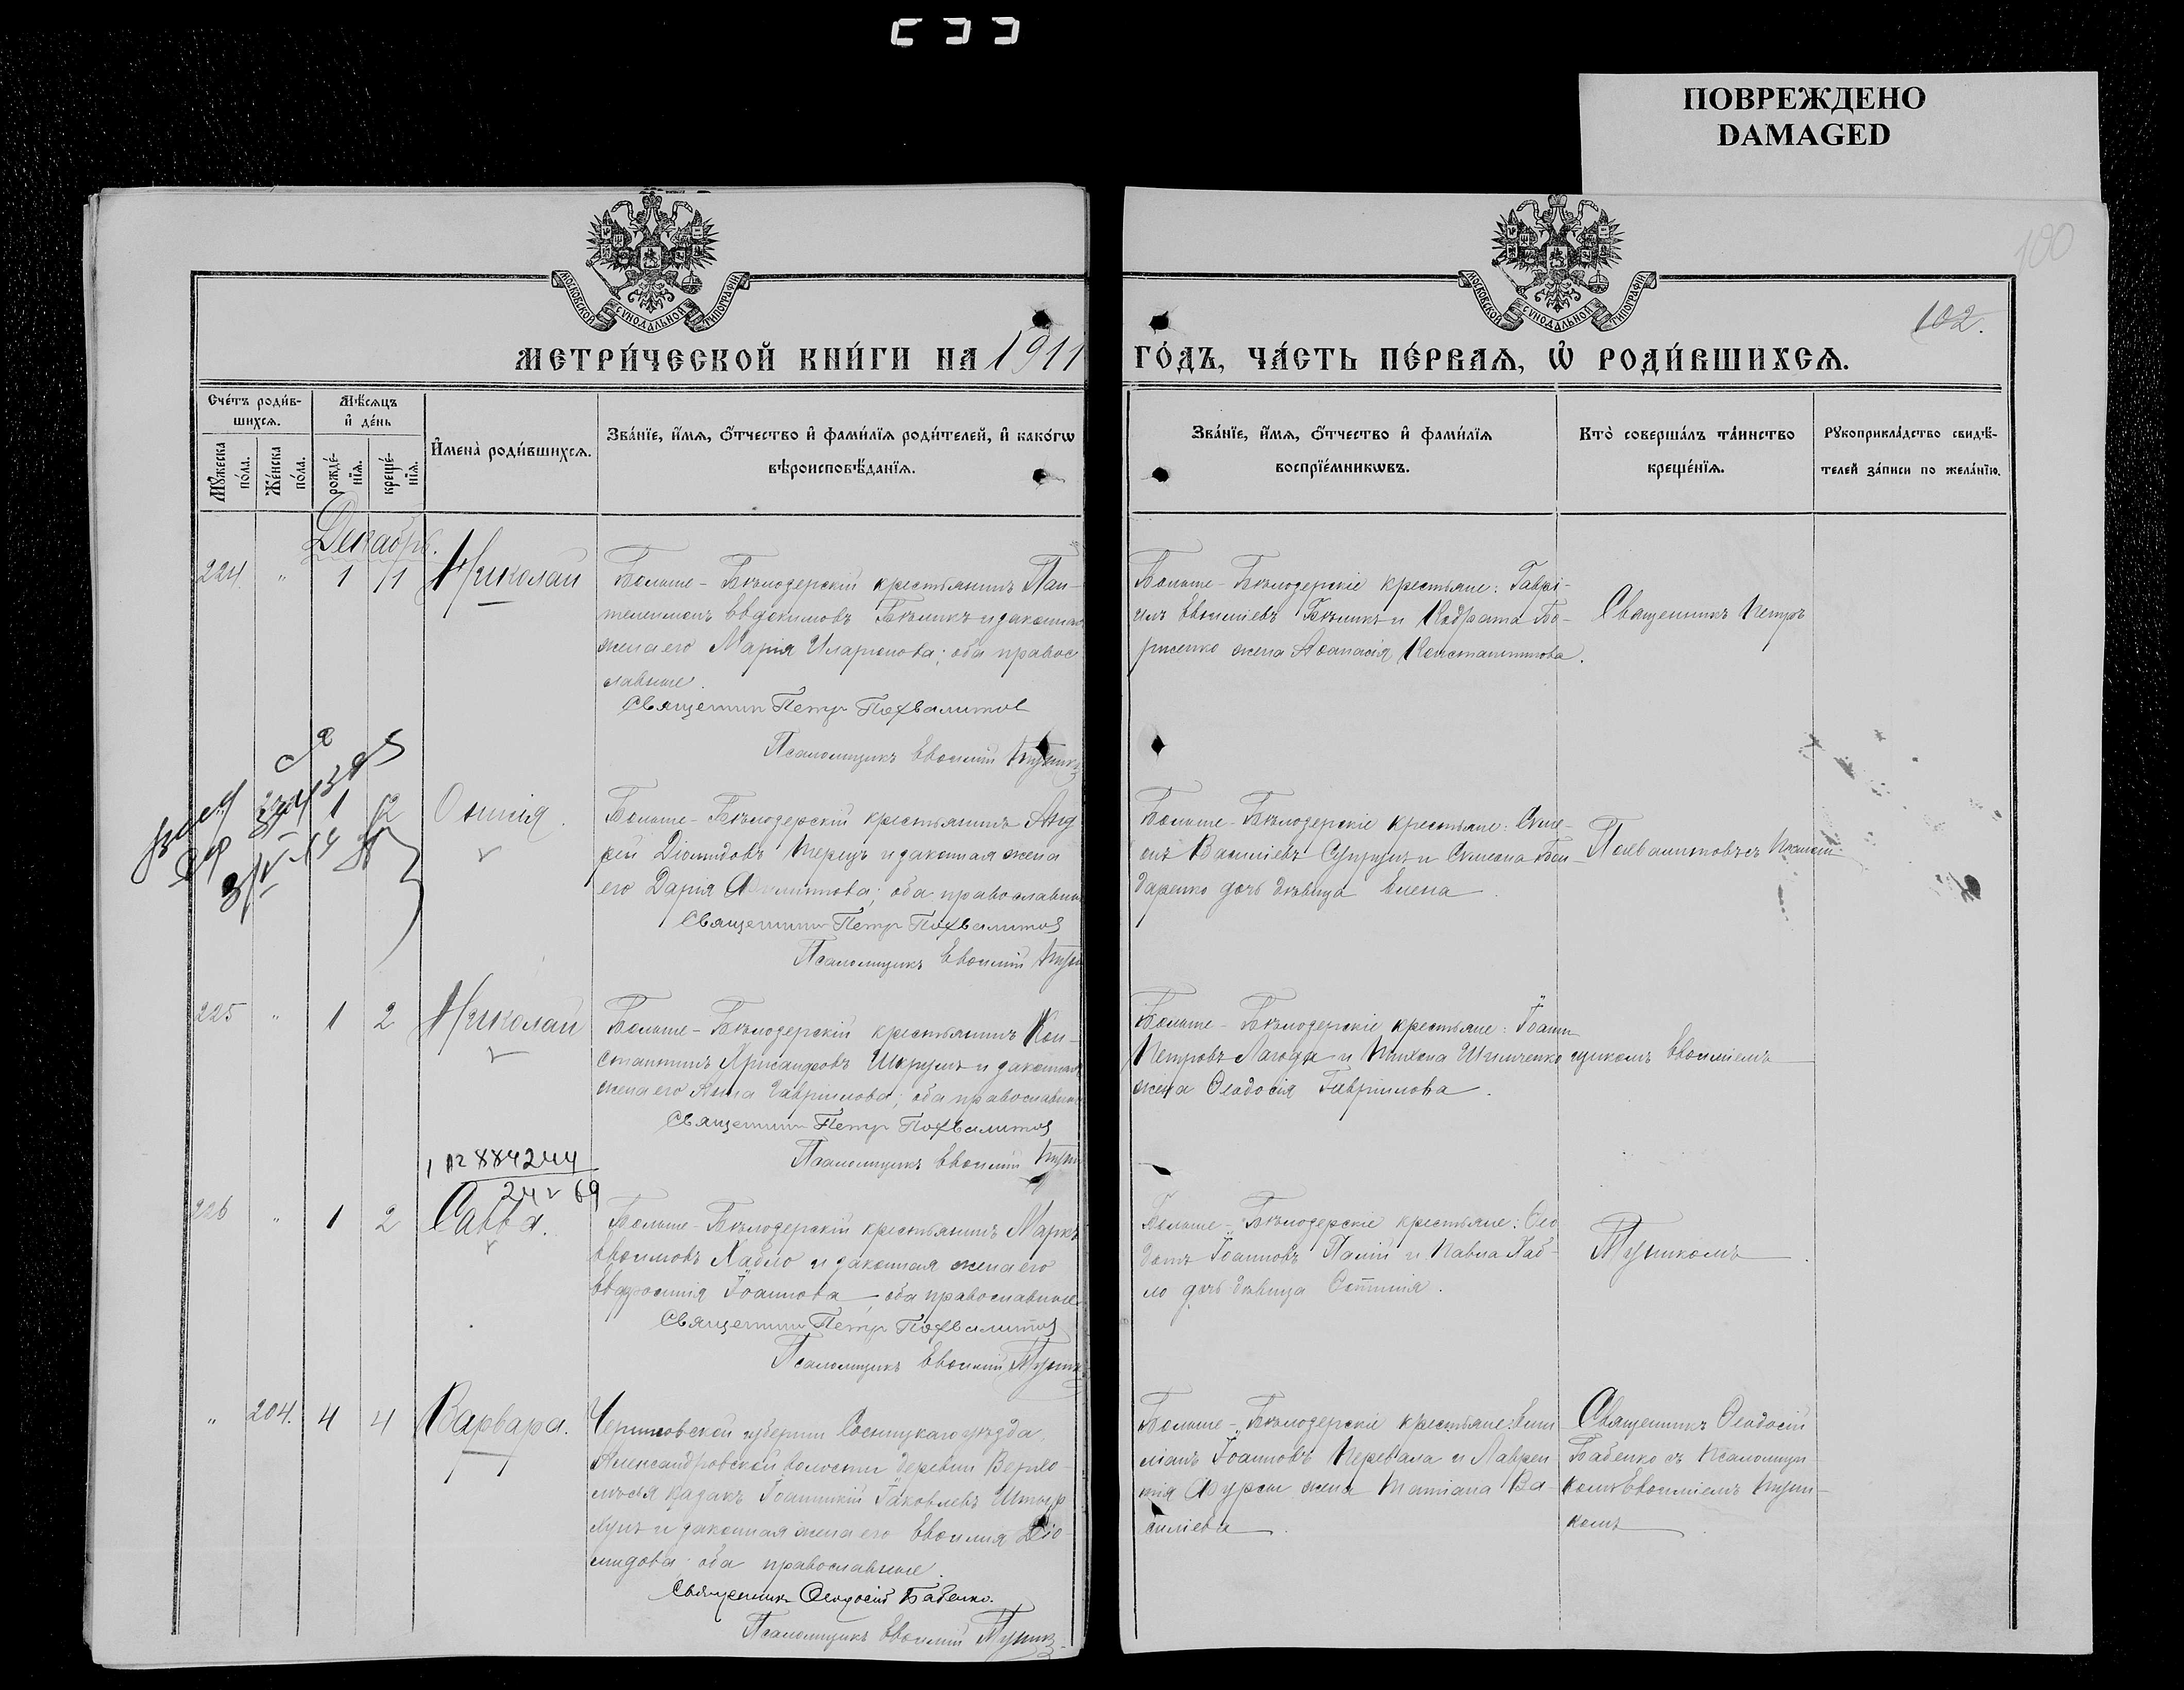 ПОВРЕЖДЕНО
DAMAGED
100
102.
МОСКОВСКОЙ СѴНОДАЛЬНОЙ ТИПОГРАФІИ
МОСКОВСКОЙ СѴНОДАЛЬНОЙ ТИПОГРАФІИ
МЕТРИ́ЧЕСКОЙ КНИ́ГИ НА 1911
ГО́ДЪ, ЧА́СТЬ ПЕ́РВАѦ, Ѽ РОДИ́ВШИХСѦ.
Сче́тъ роди́в-
шихсѧ.
Мѣ́сѧцъ
и҆ де́нь
Мꙋ́жеска
по́ла.
Же́нска
по́ла.
рожде́-
нїѧ.
креще́-
нїѧ.
И҆мена̀ роди́вшихсѧ.
Зва́нїе, и҆́мѧ, ѻ҆́тчество и҆ фами́лїѧ роди́телей, и҆ како́гѡ
вѣроисповѣ́данїѧ.
Зва́нїе, и҆́мѧ, ѻ҆́тчество и҆ фами́лїѧ
воспрїе́мникѡвъ.
Кто̀ соверша́лъ та́инство
креще́нїѧ.
Рꙋкоприкла́дство свидѣ́-
телей за́писи по жела́нїю.
Декабрь.
224 " 1 1 Николай
Больше-Бѣлозерскій крестьянинъ Пан-
телеимонъ Евдокимовъ Бѣликъ и законная
жена его Марія Иларіонова; оба правос
лавные.
Священник Петр Похвалитов
Псаломщикъ Евѳимій
Больше-Бѣлозерскіе крестьяне: Гаврі-
илъ Евѳиміевъ Бѣликъ и Кодрата Бо-
рисенко жена Аѳанасія Константинова.
Священникъ Петръ
1 2 Онисія.
Больше-Бѣлозерскій крестьянинъ Анд
рей Діомидовъ Терецъ и законная жена
его Дарія Филиппова; оба православные
Священник Петр Похвалитов
Псаломщикъ Евѳимій
Больше-Бѣлозерскіе крестьяне: Симе-
онъ Василіевъ Супрунъ и Симеона Бон
даренко дочь дѣвица Елена.
Похвалитовъ съ Псалом-
225 " 1 2 Николай
Больше-Бѣлозерскій крестьянинъ Кон-
стантинъ Хрисанфовъ Шкрумъ и законная
жена его Анна Гавріилова; оба православные
Священник Петр Похвалитов
Псаломщикъ Евѳимій
Больше-Бѣлозерскіе крестьяне: Іоаннъ
Петровъ Лагода и Тихона Шимченко
жена Ѳеодосія Гавріилова.
щикомъ Евѳиміемъ
884244
226 " 1 2 Савва.
Больше-Бѣлозерскій крестьянинъ Маркъ
Евѳимовъ Хабло и законная жена его
Евдокія Іоаннова, оба православные
Священник Петр Похвалитов
Псаломщикъ Евѳимій
Больше-Бѣлозерскіе крестьяне: Ѳео
дотъ Іоанновъ Палій и Павла Хаб-
ло дочь дѣвица
" 204. 4 4 Варвара.
Черниговской губерніи Сосницкаго уѣзда
Александровской волости деревни
козакъ Іоанникій Іаковлевъ
и законная жена его Евѳимія Діо-
мидова; оба православные.
Священник Ѳеодосій Бабенко.
Псаломщикъ Евѳимій
Больше-Бѣлозерскіе крестьяне: Еми
ліанъ Іоанновъ Перевала и Лаврен
тія Фурсы жена Татіана Ва-
силіева.
Священникъ Ѳеодосій
Бабенко съ Псаломщи-
комъ Евѳиміемъ